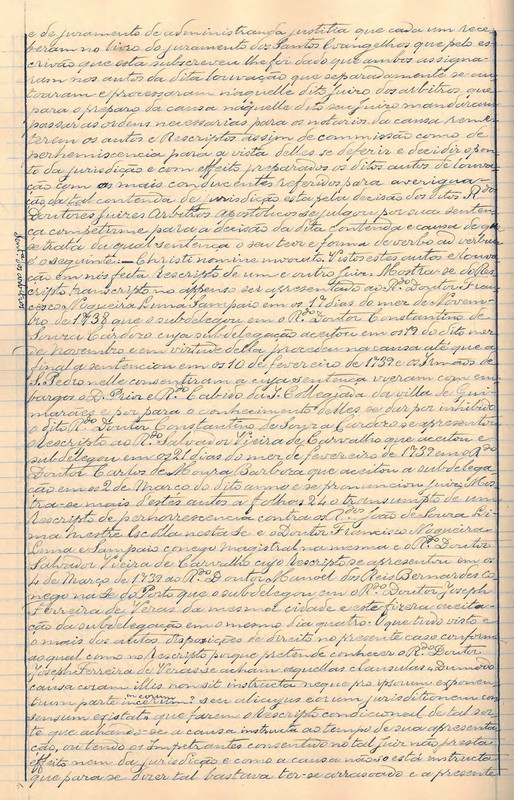 e de juramento de administrança justitia que cada um rece-
beram no livro do juramento dos Santos Evangelhos que pelo es-
crivão que esta subscreveu lhe foi dado que ambos assigna-
ram nos autos da dita louvação que separadamente se au-
toaram e processaram n'aquelle dito juizo dos arbitros, que
para o preparo da causa n'aquelle dito seu juizo mandaram
passar as ordens necessarias para os notarios da causa reme-
terem os autos e Rescriptos assim de commissão como de
perhorrescencia para a vista delles se deferir e decidir o pon-
to da jurisdição e com effeito preparados os ditos autos de louva-
ção com os mais conducentes referidos para averigua-
ção da tal contenda de jurisdição esta pela decisão dos ditos R.dos
Doutores Juizes Arbitros Apostolicos se julgou por sua senten-
ça competirme para a decisão da dita contenda e causa de que
se trata da qual sentença o seu teor e forma de verbo ad verbum
é o seguinte: — Christi nomine invocato. Vistos estes autos e louva-
ção em nós feita Rescripto de um e outro Juiz. Mostra-se do Res-
cripto transcripto no appenso ser apresentado ao R.do Doutor Fran-
cisco Nogueira Lima Sampaio em os 17 dias do mez de Novem-
bro de 1738 que o subdelegou em o R.do Doutor Constantino de
Souza Cardozo cuja subdelegação aceitou em os 19 do dito mez
de Novembro e em virtude della procedeu na causa até que a
final a sentenciou em os 10 de fevereiro de 1739 e os Irmãos de
S. Pedro nelle consentiram a cuja sentença vieram com em-
bargos o D. Prior e R.do Cabido da I. Collegiada da villa de Gui-
marães e por para o conhecimento delles, se dar por inhibido
o dito R.do Doutor Constantino de Souza Cardozo se apresentou
o Rescripto ao R.do Salvador Vieira de Carvalho que aceitou e
subdelegou em os 21 dias do mez de fevereiro de 1739 em o R.do
Doutor Carlos de Moura Barboza que aceitou a subdelega-
ção em os 2 de Março do dito anno e se pronunciou juiz. Mos-
tra-se mais d'estes autos a folhas 24 o transumpto de um
Rescripto de perhorrescencia contra os R.dos João de Souza Li-
ma Mestre Escolla nesta Se e o Doutor Francisco Nogueira
Lima e Sampaio conego magistral na mesma e o R.do Doutor
Salvador Vieira de Carvalho cujo Rescripto se apresentou em os
4 de Março de 1739 ao R.do Dontor Manoel dos Reis Bernardes Co-
nego na Se do Porto que o subdelegou em o R.do Doutor Joseph
Ferreira de Veras da mesma cidade e este fizera aceita-
ção da subdelegação em o mesmo dia quatro. O que tudo visto e
o mais dos autos disposições de direito no presente caso conforme
ao qual como no Rescripto porque pretende conhecer o R.do Doutor
Joseph Ferreira de Veras se acham aquellas clausulas: Dummodo
causa coram illis non sit instructa neque pro ipsorum exponen-
tium parte in eorum seu alicujus eorum jurisdictionem con-
sensum existat: que fazem o Rescripto condicional de tal sor-
te que achando-se a causa instructa ao tempo de sua apresenta-
ção, ou tendo os Impetrantes consentido no tal juiz não presta
effeito nem da jurisdição e como a causa não só está instructa
que para se dizer tal bastava ter-se arrasoado e a presente